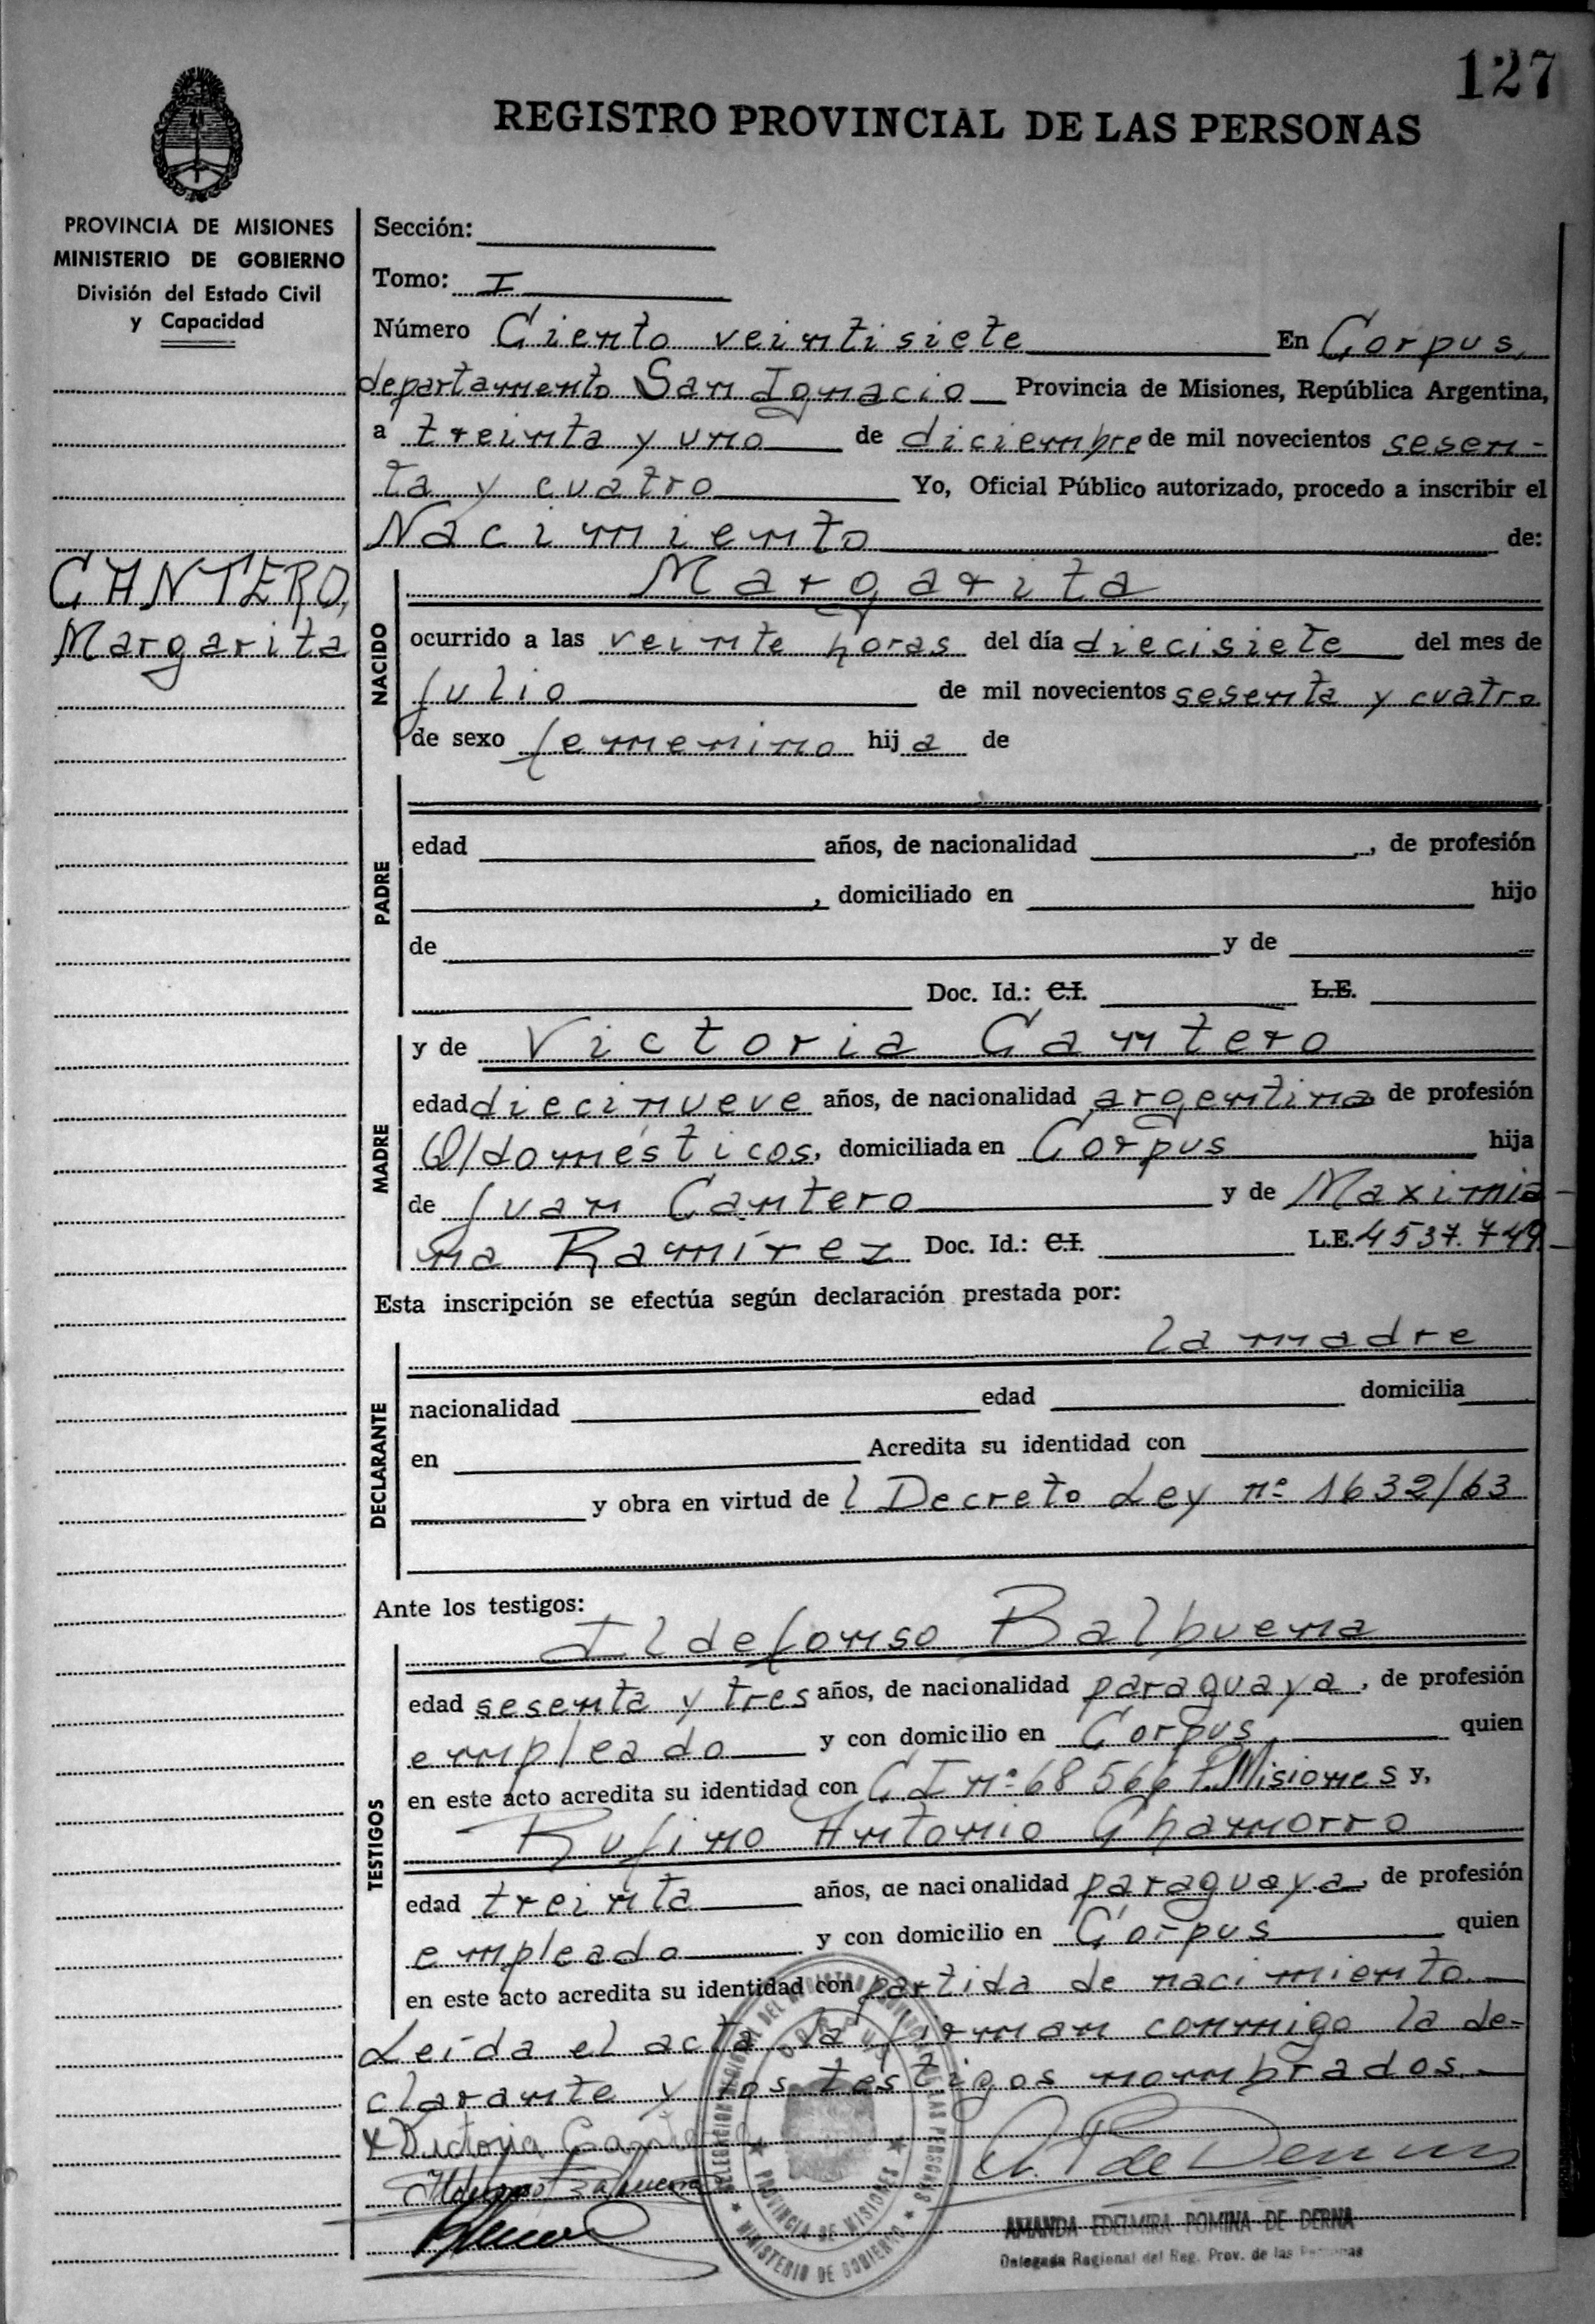 127
REGISTRO PROVINCIAL DE LAS PERSONAS
PROVINCIA DE MISIONES
MINISTERIO DE GOBIERNO
División del Estado Civil
y Capacidad
CANTERO,
Margarita
Sección:
Tomo: I
Número Ciento veintisiete En Corpus,
departamento San Ignacio Provincia de Misiones, República Argentina,
a treinta y uno de diciembre de mil novecientos sesen-
ta y cuatro Yo, Oficial Público autorizado, procedo a inscribir el
Nacimiento de:
NACIDO
Margarita
ocurrido a las veinte horas del día diecisiete del mes de
julio de mil novecientos sesenta y cuatro
de sexo femenino hija de
PADRE
edad años, de nacionalidad , de profesión
, domiciliado en hijo
de y de
Doc. Id.: C.I. L.E.
MADRE
y de Victoria Cantero
edad diecinueve años, de nacionalidad argentina de profesión
Q/domésticos, domiciliada en Corpus hija
de Juan Cantero y de Maximia-
na Ramírez Doc. Id.: C.I. L.E. 4537.749
Esta inscripción se efectúa según declaración prestada por:
DECLARANTE
la madre
nacionalidad edad domicilia
en Acredita su identidad con
y obra en virtud del Decreto Ley nº 1632/63
Ante los testigos:
TESTIGOS
Ildefonso Balbuena
edad sesenta y tres años, de nacionalidad paraguaya, de profesión
empleado y con domicilio en Corpus, quien
en este acto acredita su identidad con CI nº 68566 P.Misiones y,
Rufino Antonio Chamorro
edad treinta años, de nacionalidad paraguaya, de profesión
empleado y con domicilio en Corpus quien
en este acto acredita su identidad con partida de nacimiento.
Leída el acta, la firman conmigo la de-
clarante y los testigos nombrados.
x Victoria Cantero
Ildefonso Balbuena
DELEGACION REGIONAL DEL REGISTRO PROVINCIAL DE LAS PERSONAS
CORPUS
PROVINCIA DE MISIONES
MINISTERIO DE GOBIERNO
A. P de Derna
AMANDA EDELMIRA POMINA DE DERNA
Delegada Regional del Reg. Prov. de las Personas